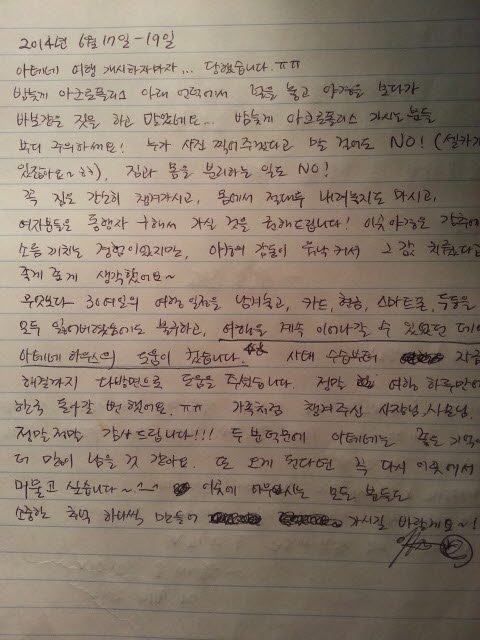 2014년 6월 17일 -19일
아테네 여행 개시하자마자... 당했습니다.ㅠㅠ
밤늦게 아크로폴리스 아래 언덕에서 넋을 놓고 야경을 보다가
바보같은 짓을 하고 말았네요... 밤늦게 아크로폴리스 가시는 분들
부디 주의하세요! 누가 사진 찍어주겠다고 말 걸어도 NO! (셀카가
있잖아요~ㅎㅎ), 짐과 몸을 분리하는 일도 NO!
꼭 짐은 간단히 챙겨가시고, 몸에서 절대로 내려놓지도 마시고,
여자분들은 동행자 구해서 가실 것을 권해드립니다! 이곳 야경은 감추에
소름 끼치는 경험이었지만, 야경의 감동이 워낙 커서 그 값 치뤘다고
좋게 좋게 생각했어요~
무엇보다 30여일의 여행 일정을 남겨놓고, 카드, 현금, 스마트폰, 두통을
모두 잃어버렸음에도 불구하고, 여행을 계속 이어나갈 수 있었던 데에
아테네 하우스의 도움이 컸습니다. 사태 수습부터 자금
해결까지 다방면으로 도움을 주셨습니다. 정말 여행 하루만에
한국 돌아갈 뻔 했어요.ㅠㅠ 가족처럼 챙겨주신 사장님, 사모님,
정말정말 감사드립니다!!! 두 분 덕분에 아테네는 좋은 기억이
더 많이 남을 것 같아요. 또 오게 된다면 꼭 다시 이곳에서
머물고 싶습니다~^^ 이곳에 머무시는 모든 분들도
소중한 추억 하나씩 만들어 가시길 바랄게요~!